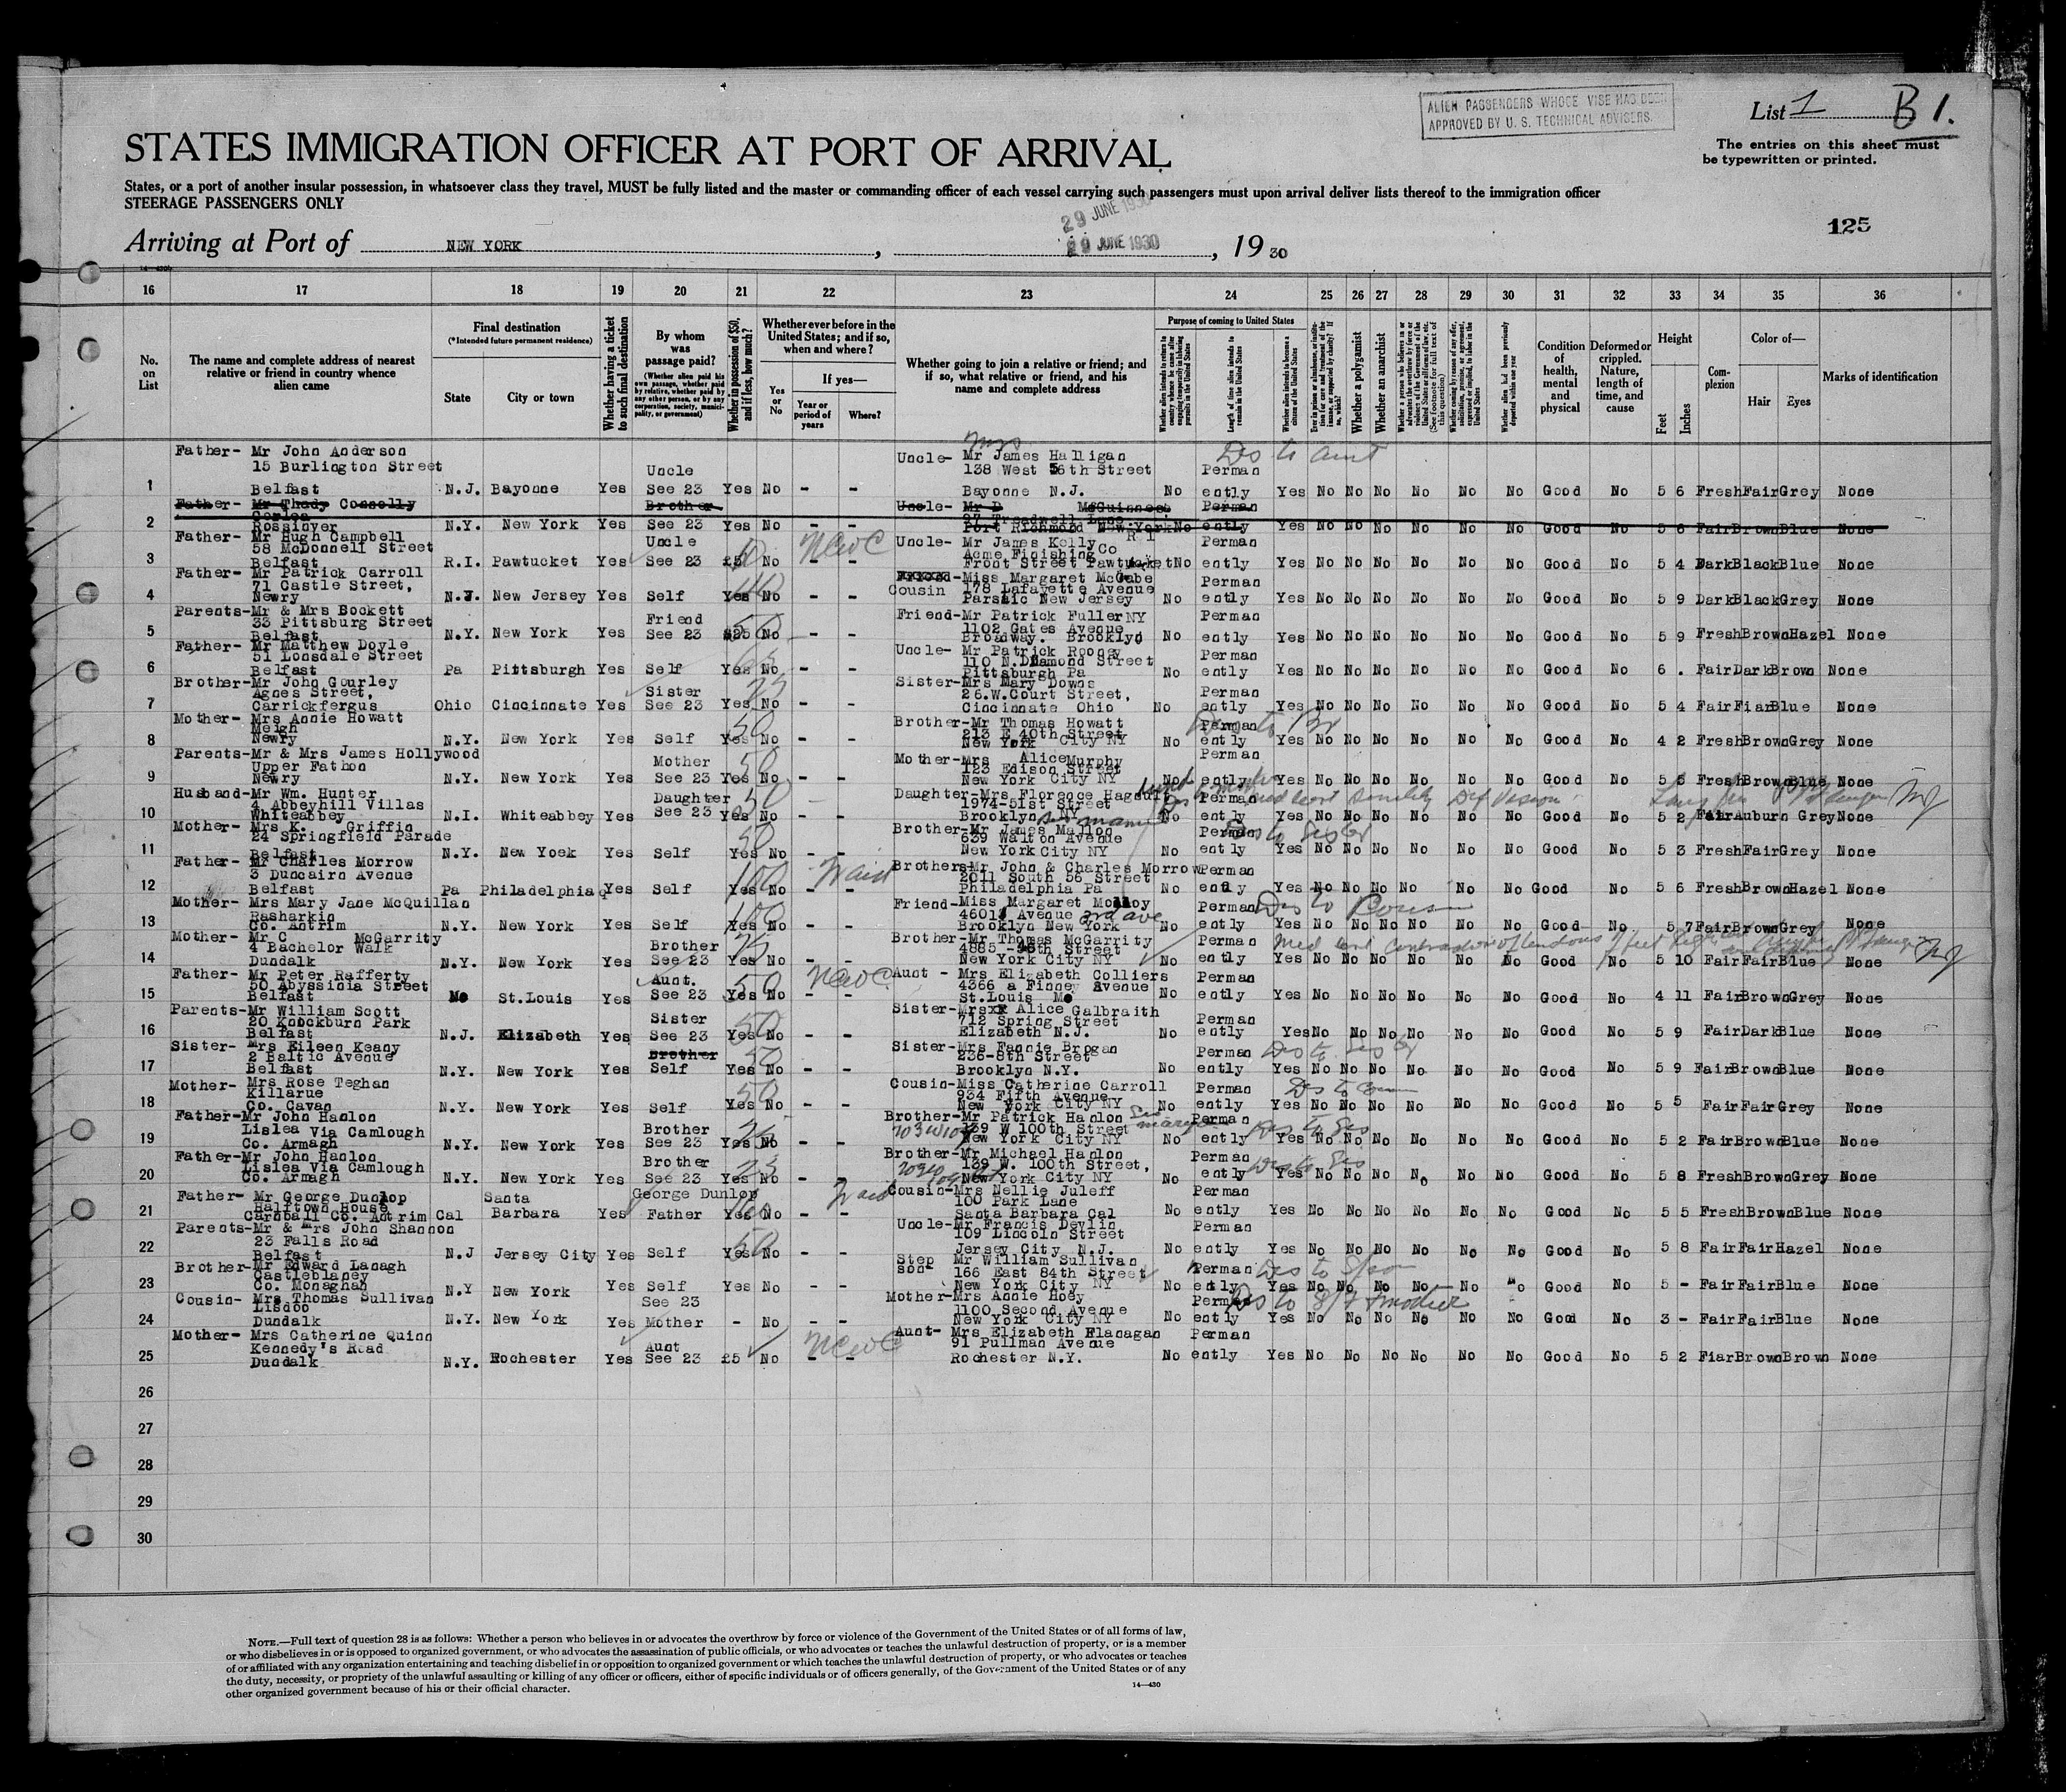 ALIEN PASSENGERS WHOSE VISE HAS BEEN
APPROVED BY U. S. TECHNICAL ADVISERS.
List 1 B 1.
The entries on this sheet must
be typewritten or printed.
STATES IMMIGRATION OFFICER AT PORT OF ARRIVAL
States, or a port of another insular possession, in whatsoever class they travel, MUST be fully listed and the master or commanding officer of each vessel carrying such passengers must upon arrival deliver lists thereof to the immigration officer
STEERAGE PASSENGERS ONLY
125
29 JUNE 1930
Arriving at Port of NEW YORK, 29 JUNE 1930, 19 30
16 17 18 19 20 21 22 23 24 25 26 27 28 29 30 31 32 33 34 35 36
No. on List
The name and complete address of nearest relative or friend in country whence alien came
Final destination
(*Intended future permanent residence)
State
City or town
Whether having a ticket to such final destination
By whom was passage paid?
(Whether alien paid his own passage, whether paid by relative, whether paid by any other person, or by any corporation, society, municipality, or government)
Whether in possession of $50, and if less, how much?
Whether ever before in the United States; and if so, when and where?
Yes or No
If yes—
Year or period of years
Where?
Whether going to join a relative or friend; and if so, what relative or friend, and his name and complete address
Purpose of coming to United States
Length of time alien intends to remain in the United States
Whether alien intends to become a citizen of the United States
Whether a polygamist
Whether an anarchist
Condition of health, mental and physical
Deformed or crippled. Nature, length of time, and cause
Height
Feet
Inches
Complexion
Color of—
Hair
Eyes
Marks of identification
1 Father- Mr John Anderson 15 Burlington Street Belfast N.J. Bayonne Yes Uncle See 23 Yes No - - Uncle- Mrs Mr James Halligan 138 West 56th Street Bayonne N.J. No Permanently Yes No No No No No No Good No 5 6 Fresh Fair Grey None
Des to aunt
2 Father- Mr Thady Connolly Rossinver N.Y. New York Yes Brother See 23 Yes No - - Uncle- Mr D McGuinness 27 Treadwell Port Richmond New York No Permanently Yes No No No No No No Good No 5 6 Fair Brown Blue None
3 Father- Mr Hugh Campbell 58 McDonnell Street Belfast R.I. Pawtucket Yes Uncle See 23 £5 No - - Uncle- Mr James Kelly Acme Finishing Co Front Street Pawtucket R I No Permanently Yes No No No No No No Good No 5 4 Dark Black Blue None
4 Father- Mr Patrick Carroll 71 Castle Street, Newry N.J. New Jersey Yes Self Yes No - - Cousin -Miss Margaret McCabe 178 Lafayette Avenue Parsaic New Jersey No Permanently Yes No No No No No No Good No 5 9 Dark Black Grey None
5 Parents-Mr & Mrs Bockett 33 Pittsburg Street Belfast N.Y. New York Yes Friend See 23 $25 No - - Friend-Mr Patrick Fuller NY 1102 Gates Avenue Broadway. Brooklyn No Permanently Yes No No No No No No Good No 5 9 Fresh Brown Hazel None
6 Father- Mr Matthew Doyle 51 Lonsdale Street Belfast Pa Pittsburgh Yes Self Yes No - - Uncle- Mr Patrick Rooney 110 N.Diamond Street Pittsburgh Pa No Permanently Yes No No No No No No Good No 6 . Fair Dark Brown None
7 Brother-Mr John Gourley Agnes Street, Carrickfergus Ohio Cincinnate Yes Sister See 23 Yes No - - Sister-Mrs Mary Downs 26.W.Court Street, Cincinnate Ohio No Permanently Yes No No No No No No Good No 5 4 Fair Fiar Blue None
8 Mother- Mrs Annie Howatt Meigh Newry N.Y. New York Yes Self Yes No - - Brother-Mr Thomas Howatt 213 E 40th Street New York City NY No Permanently Yes No No No No No No Good No 4 2 Fresh Brown Grey None
9 Parents-Mr & Mrs James Hollywood Upper Fathom Newry N.Y. New York Yes Mother See 23 Yes No - - Mother-Mrs Alice Murphy 123 Edison Street New York City NY No Permanently Yes No No No No No No Good No 5 6 Fresh Brown Blue None
10 Husband-Mr Wm. Hunter 4 Abbeyhill Villas Whiteabbey N.I. Whiteabbey Yes Daughter See 23 Yes No - - Daughter-Mrs Florence Hagault 1974-51st Street Brooklyn NY No Permanently Yes No No No No No No Good No 5 2 Fair Auburn Grey None
11 Mother- Mrs K. Griffin 24 Springfield Parade Belfast N.Y. New Yoek Yes Self Yes No - - Brother-Mr James Mallon 639 Walton Avenue New York City NY No Permanently Yes No No No No No No Good No 5 3 Fresh Fair Grey None
12 Father- Mr Charles Morrow 3 Duncairn Avenue Belfast Pa Philadelphia Yes Self Yes No - - Brothers-Mr John & Charles Morrow 2011 South 56 Street Philadelphia Pa No Permanently Yes No No No No No No Good No 5 6 Fresh Brown Hazel None
13 Mother- Mrs Mary Jane McQuillan Rasharkin Co. Antrim N.Y. New York Yes Self Yes No - - Friend-Miss Margaret Molloy 4601 Avenue 3rd ave Brooklyn New York No Permanently Yes No No No No No No Good No. 5 7 Fair Brown Grey None
14 Mother- Mr C McGarrity 4 Bachelor Walk Dundalk N.Y. New York Yes Brother See 23 Yes No - - Brother-Mr Thomas McGarrity 4865 -46th Street New York City NY No Permanently Yes No No No No No No Good No 5 10 Fair Fair Blue None
15 Father- Mr Peter Rafferty 50 Abyssinia Street Belfast Mo St.Louis Yes Aunt. See 23 Yes No - - Aunt - Mrs Elizabeth Colliers 4366 a Finney Avenue St.Louis Mo No Permanently Yes No No No No No No Good No 4 11 Fair Brown Grey None
16 Parents-Mr William Scott 20 Knockburn Park Belfast N.J. Elizabeth Yes Sister See 23 Yes No - - Sister-Mrs Alice Galbraith 712 Spring Street Elizabeth N.J. No Permanently Yes No No No No No No Good No 5 9 Fair Dark Blue None
17 Sister- Mrs Eileen Keany 2 Baltic Avenue Belfast N.Y. New York Yes Brother Self Yes No - - Sister-Mrs Fannie Brogan 236-8th Street Brooklyn N.Y. No Permanently Yes No No No No No No Good No 5 9 Fair Brown Blue None
18 Mother- Mrs Rose Teghan Killarue Co. Cavan N.Y. New York Yes Self Yes No - - Cousin-Miss Catherine Carroll 934 Fifth Avenue New York City NY No Permanently Yes No No No No No No Good No 5 5 Fair Fair Grey None
19 Father-Mr John Hanlon Lislea Via Camlough Co. Armagh N.Y. New York Yes Brother See 23 Yes No - - Brother-Mr Patrick Hanlon 139 W 100th Street New York City NY No Permanently Yes No No No No No No Good No 5 2 Fair Brown Blue None
20 Father-Mr John Hanlon Lislea Via Camlough Co. Armagh N.Y. New York Yes Brother See 23 Yes No - - Brother-Mr Michael Hanlon 139 W. 100th Street, New York City NY No Permanently Yes No No No No No No Good No 5 8 Fresh Brown Grey None
21 Father- Mr George Dunlop Halftown House Carnball Co. Antrim Cal Santa Barbara Yes George Dunlop Father Yes No - - Cousin-Mrs Nellie Juleff 100 Park Lane Santa Barbara Cal No Permanently Yes No No No No No No Good No 5 5 Fresh Brown Blue None
22 Parents-Mr & Mrs John Shannon 23 Falls Road Belfast N.J Jersey City Yes Self Yes No - - Uncle-Mr Francis Devlin 109 Lincoln Street Jersey City N.J. No Permanently Yes No No No No No No Good No 5 8 Fair Fair Hazel None
23 Brother-Mr Edward Lanagh Castleblaney Co. Monaghan N.Y New York Yes Self Yes No - - Step son- Mr William Sullivan 166 East 84th Street New York City NY No Permanently Yes No No No No No No Good No 5 - Fair Fair Blue None
24 Cousin- Mrs Thomas Sullivan Lisdoo Dundalk N.Y. New York Yes See 23 Mother - No - - Mother-Mrs Annie Hoey 1100 Second Avenue New York City NY No Permanently Yes No No No No No No Good No 3 - Fair Fair Blue None
25 Mother- Mrs Catherine Quinn Kennedy's Road Dundalk N.Y. Rochester Yes Aunt See 23 £5 No - - Aunt- Mrs Elizabeth Flanagan 91 Pullman Avenue Rochester N.Y. No Permanently Yes No No No No No No Good No 5 2 Fiar Brown Brown None
26
27
28
29
30
NOTE.—Full text of question 28 is as follows: Whether a person who believes in or advocates the overthrow by force or violence of the Government of the United States or of all forms of law,
or who disbelieves in or is opposed to organized government, or who advocates the assassination of public officials, or who advocates or teaches the unlawful destruction of property, or is a member
of or affiliated with any organization entertaining and teaching disbelief in or opposition to organized government or which teaches the unlawful destruction of property, or who advocates or teaches
the duty, necessity, or propriety of the unlawful assaulting or killing of any officer or officers, either of specific individuals or of officers generally, of the Government of the United States or of any
other organized government because of his or their official character.
14—430